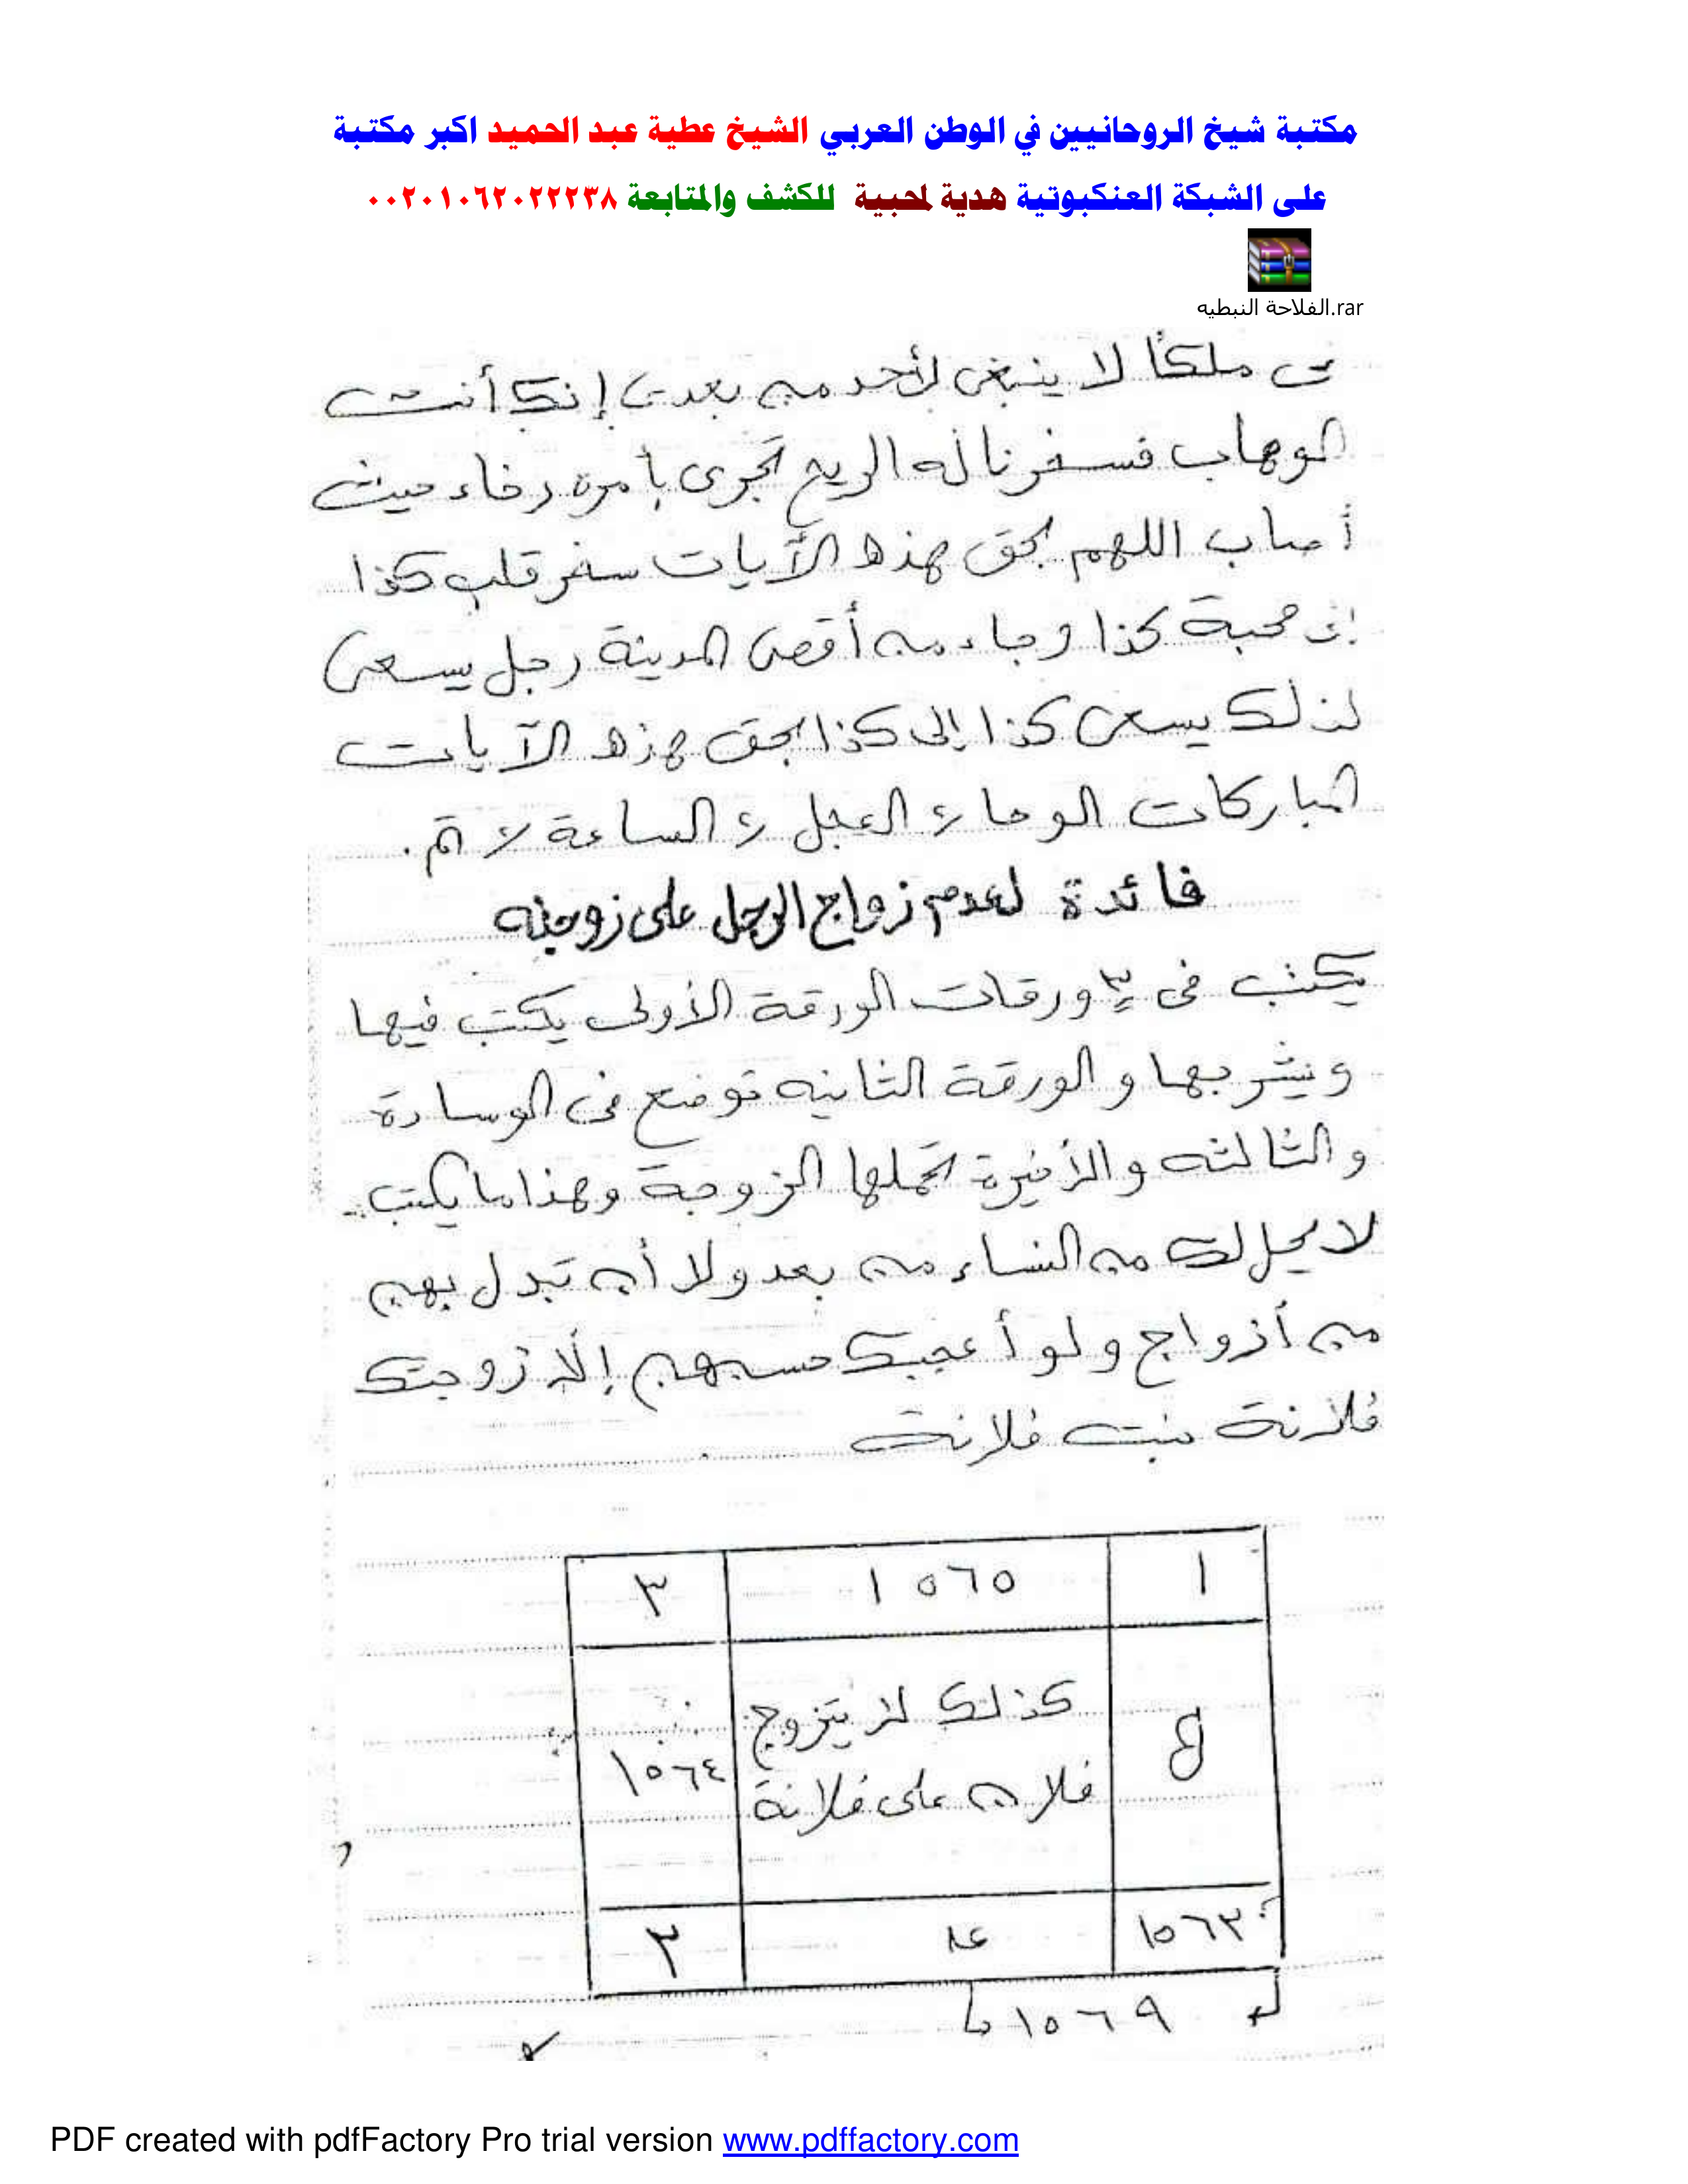 مكتبة شيخ الروحانيين في الوطن العربي الشيخ عطية عبد الحميد اكبر مكتبة
على الشبكة العنكبوتية هدية لمحبية للكشف والمتابعة ٠٠٢٠١٠٦٢٠٢٢٢٣٨
الفلاحة النبطيه.rar
لى ملكاً لا ينبغى لأحد من بعدى إنك أنت
الوهاب فسخرنا له الريح تجرى بأمره رخاء حيث
أصاب اللهم بحق هذه الآيات سخر قلب كذا
إلى محبة كذا وجاء من أقصى المدينة رجل يسعى
لذلك يسعى كذا إلى كذا بحق هذه الآيات
المباركات الوحا ٢ العجل ٢ الساعة ٢ تم.
فائدة لعدم زواج الرجل على زوجته
يكتب فى ٣ ورقات الورقة الأولى يكتب فيها
ويشربها والورقة الثانيه توضع فى الوسادة
والثالثه والأخيرة تحملها الزوجة وهذا ما يكتب
لا يحل لك من النساء من بعد ولا أن تبدل بهن
من أزواج ولو أعجبك حسنهن إلا زوجتك
فلانة بنت فلانة
١ ١٥٦٥ ٣
كذلك لا يتزوج
١٥٦٤
فلان على فلانة
١٥٦٣ ٣
١٥٦٩
PDF created with pdfFactory Pro trial version www.pdffactory.com